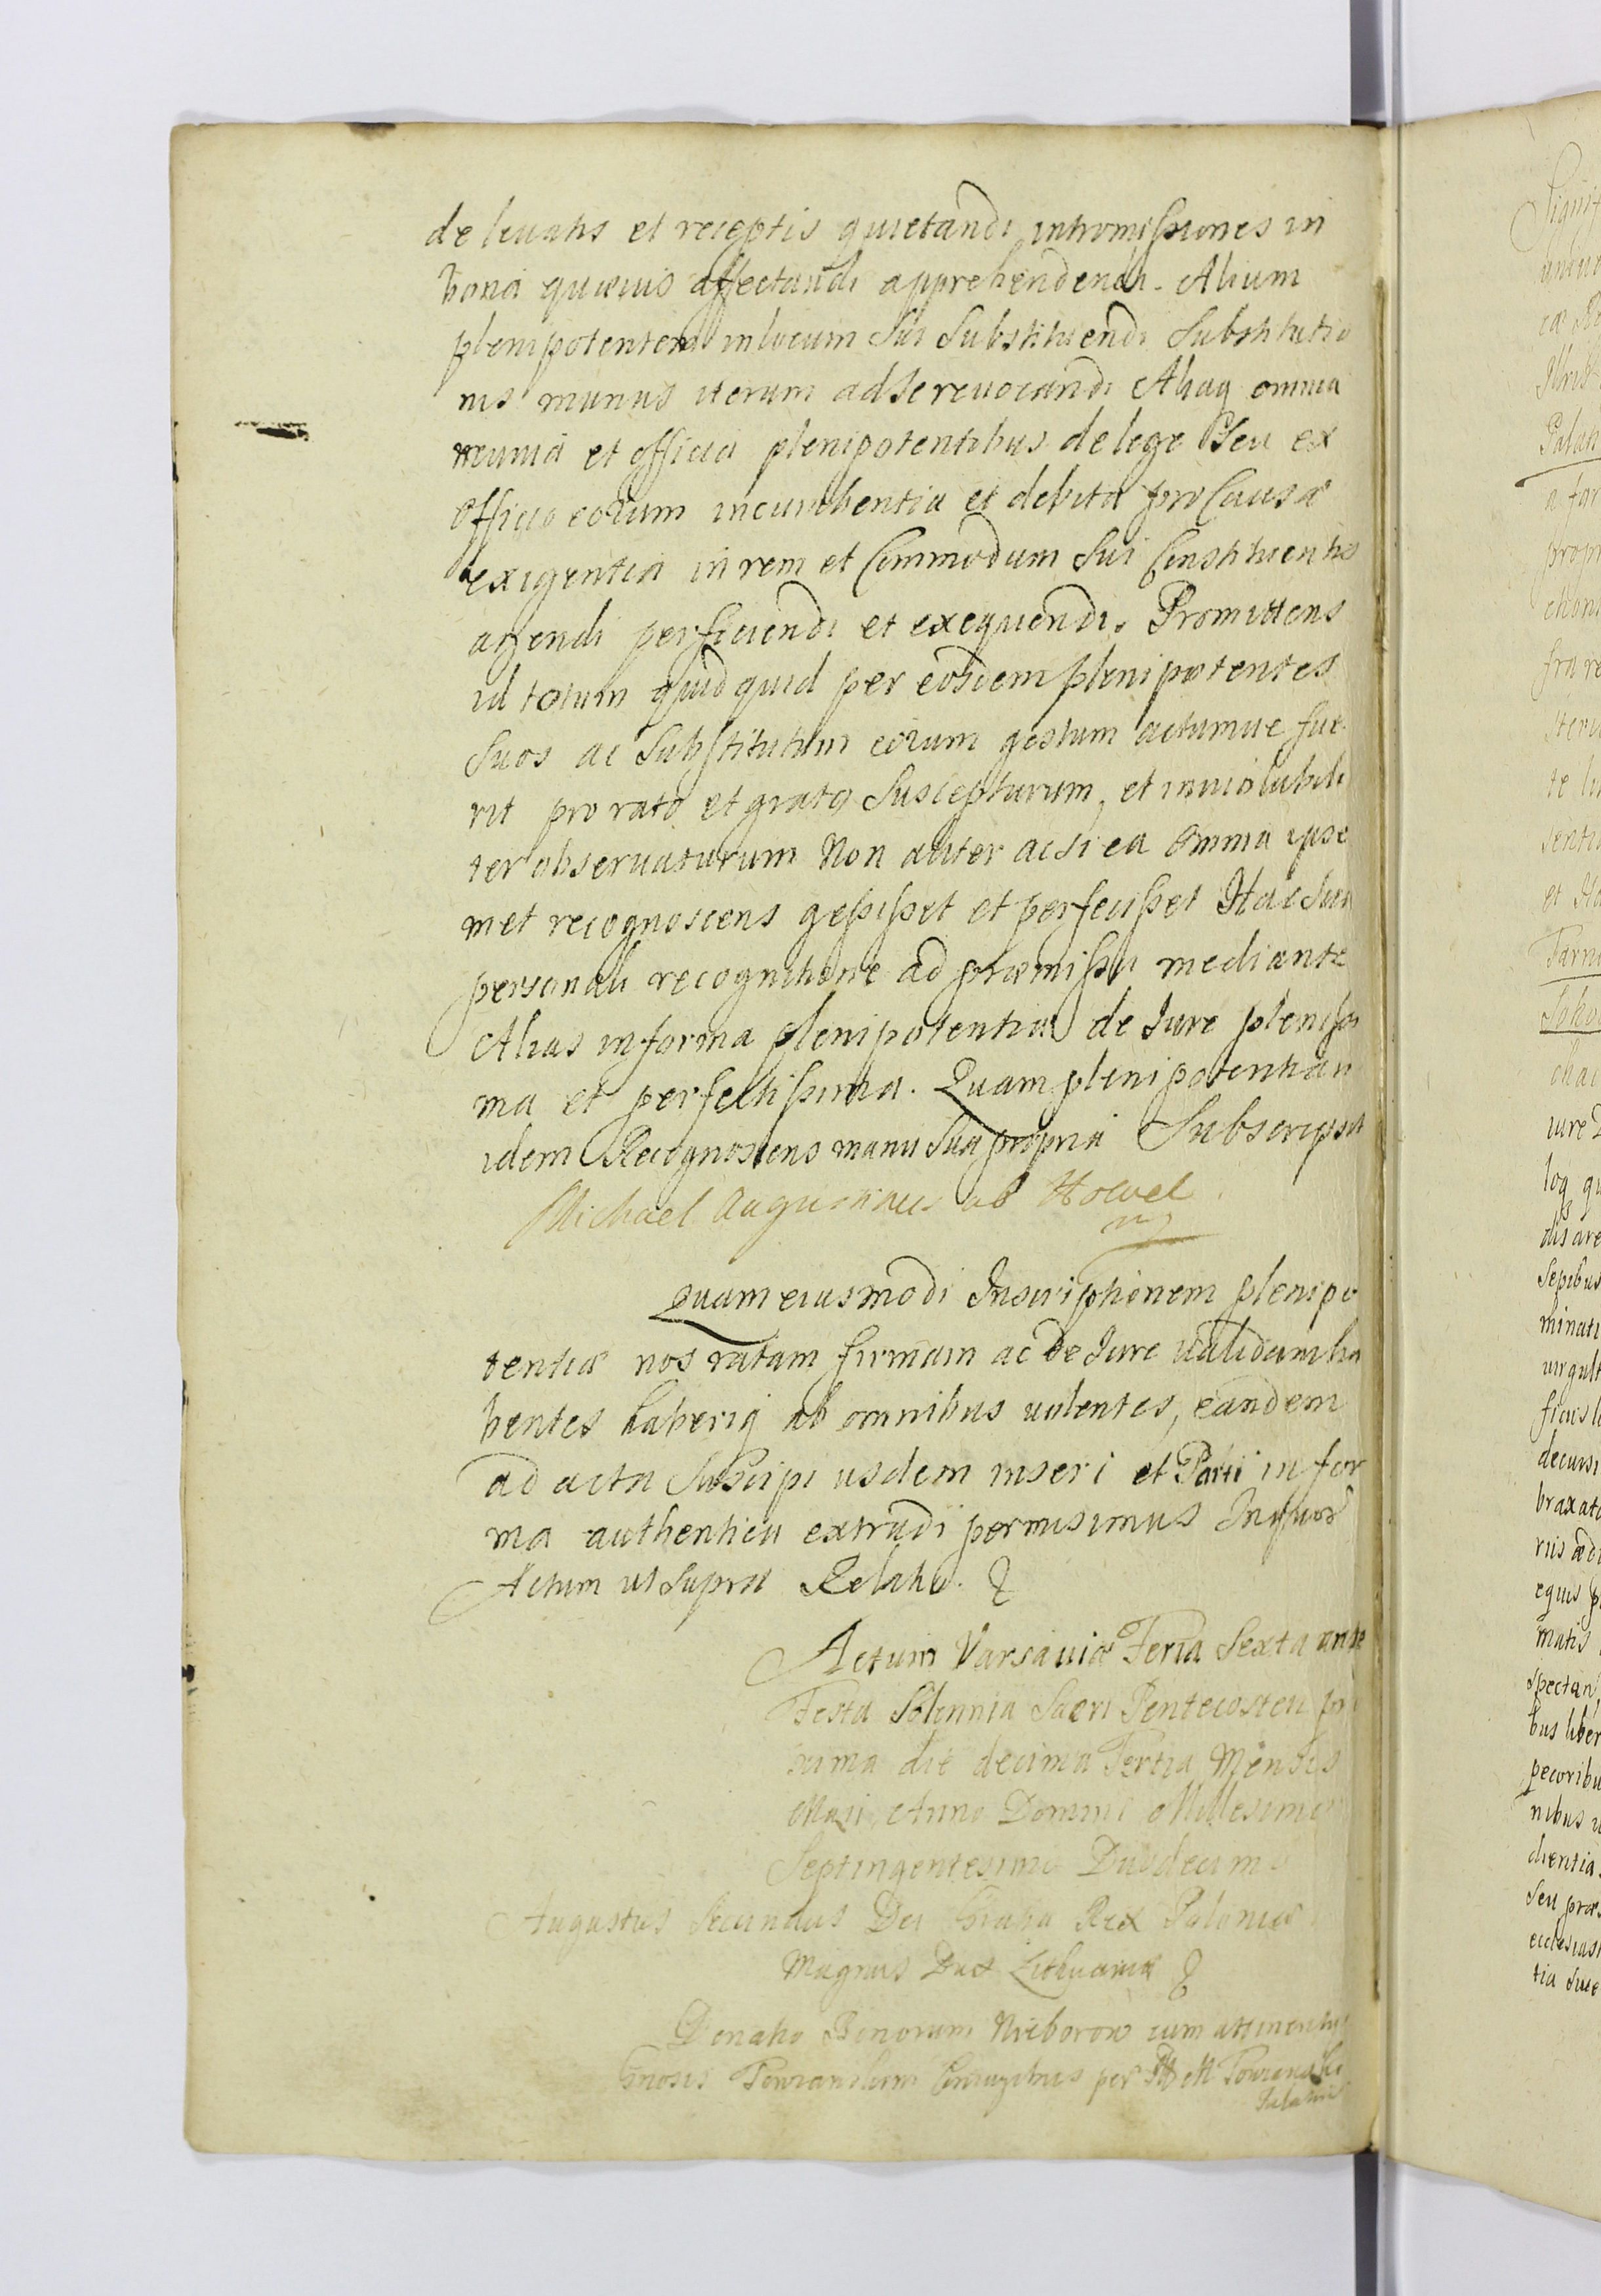 de levatis et receptis quietandi intromissiones in
bona quævis affectandi apprehendendi. Alium
plenipotentem in locum sui substituendi substitutio
nis munus iterum ad se revocandi Aliaq omnia
munia et officia plenipotentibus de lege seu ex
officio eorum incumbentia et debita pro Causæ
exigentia in rem et Commodum sui Constituentis
agendi perficiendi et exequendi. Promittens
id totum quidquid per eosdem plenipotentes
suos ac substitutum eorum gestum actumve fue
rit pro rato et grato suscepturum, et inviolabili
ter observaturum Non aliter ac si ea omnia ipse
met recognoscens gessisset et perfecisset Hac sua
personali recognitione ad præmissa mediante
Alias in forma plenipotentiæ de Iure plenissi
ma et perfectissima. Quam plenipotentiam
idem Recognoscens manu sua propria Subscripsit
Michael Augustinus ab Howel
Quam eiusmodi Inscriptionem plenipo
tentiæ nos ratam firmam ac de Iure validam ha
bentes haberiq ab omnibus volentes, eandem
ad acta suscipi iisdem inseri et Parti in for
ma authentica extradi permisimus
Actum ut supra Relatio.
Actum Varsaviæ Feria Sexta ante
Festa Solennia Sacri Pentecosten pro
xima die decima Tertia Mensis
Maii Anno Domini Millesimo
Septingentesimo Duodecimo
Augustus Secundus Dei Gratia Rex Poloniæ
Magnus Dux Lithuaniæ
Donatio Bonorum Nieborow cum attinentiis
Gnosis Towianskim Coniugibus per M Towianski